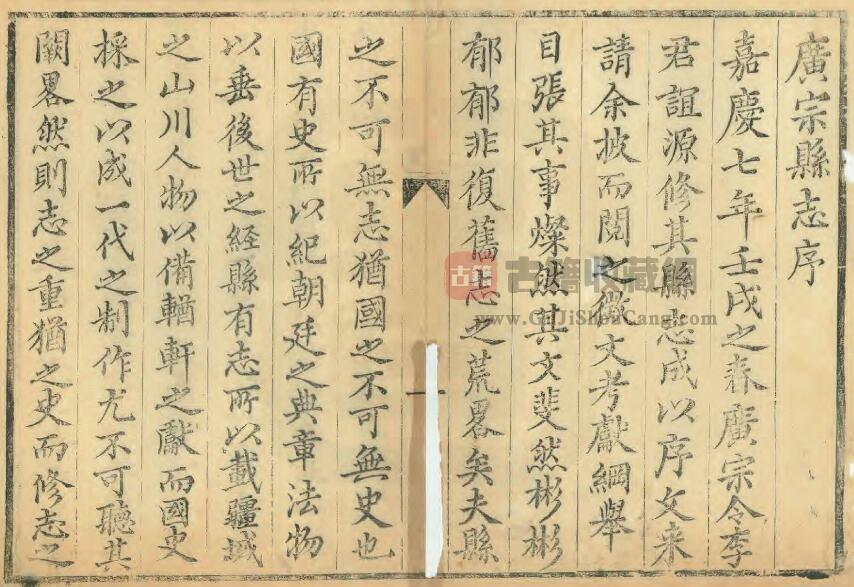 廣宗縣志序
嘉慶七年壬戌之春廣宗令李
君誼源修其縣志成以序文来
請余披而閱之徵文考獻綱舉
目張其事燦然其文斐然彬彬
郁郁非復舊志之荒畧矣夫縣
一
之不可無志猶國之不可無史也
國有史所以紀朝廷之典章法物
以垂後世之經縣有志所以載疆域
之山川人物以備輶軒之獻而國史
採之以成一代之制作尤不可聽其
闕畧然則志之重猶之史而修志之
古籍
古籍收藏網
www.GuJiShouCang.com